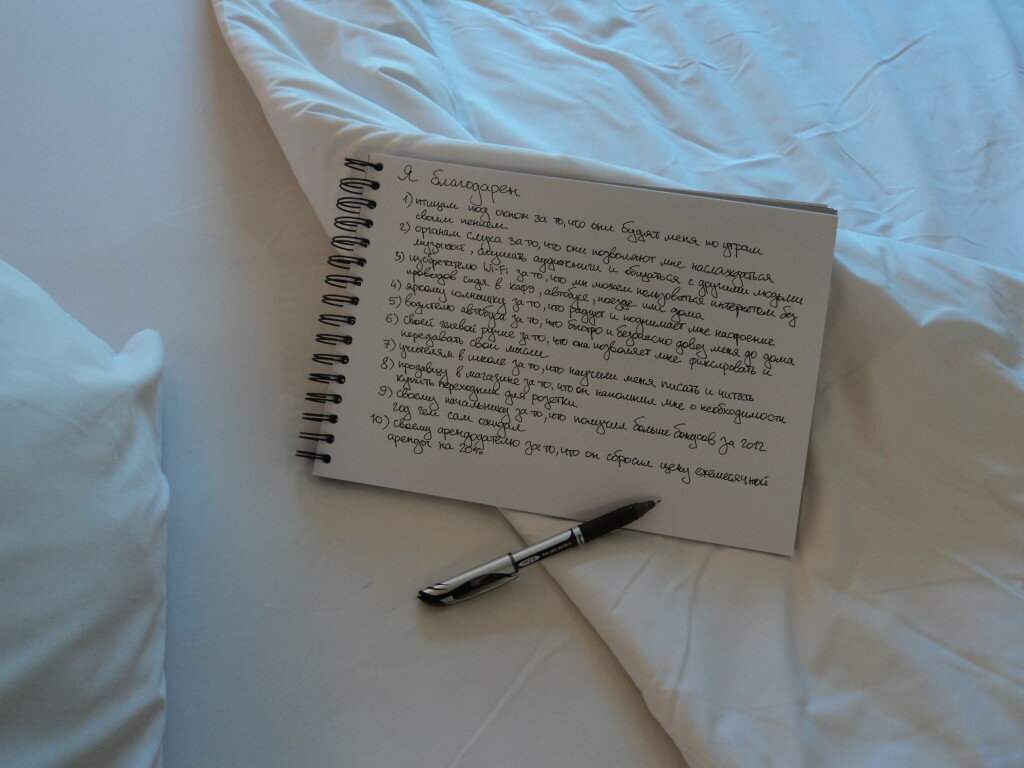 Я благодарен
1) птицам под окном за то, что они будят меня по утрам
своим пением
2) органам слуха за то, что они позволяют мне наслаждаться
музыкой, слушать аудиокниги и общаться с другими людьми
3) изобретателю Wi-Fi за то, что мы можем пользоваться интернетом без
проводов сидя в кафе, автобусе, поезде или дома
4) яркому солнышку за то, что радует и поднимает мне настроение
5) водителю автобуса за то, что быстро и безопасно довёз меня до дома
6) своей гелевой ручке за то, что она позволяет мне фиксировать и
передавать свои мысли
7) учителям в школе за то, что научили меня писать и читать
8) продавцу в магазине за то, что он напомнил мне о необходимости
купить переходник для розетки
9) своему начальнику за то, что получил больше бонусов за 2012
год чем сам ожидал
10) своему арендодателю за то, что он сбросил цену ежемесячной
аренды на 20%